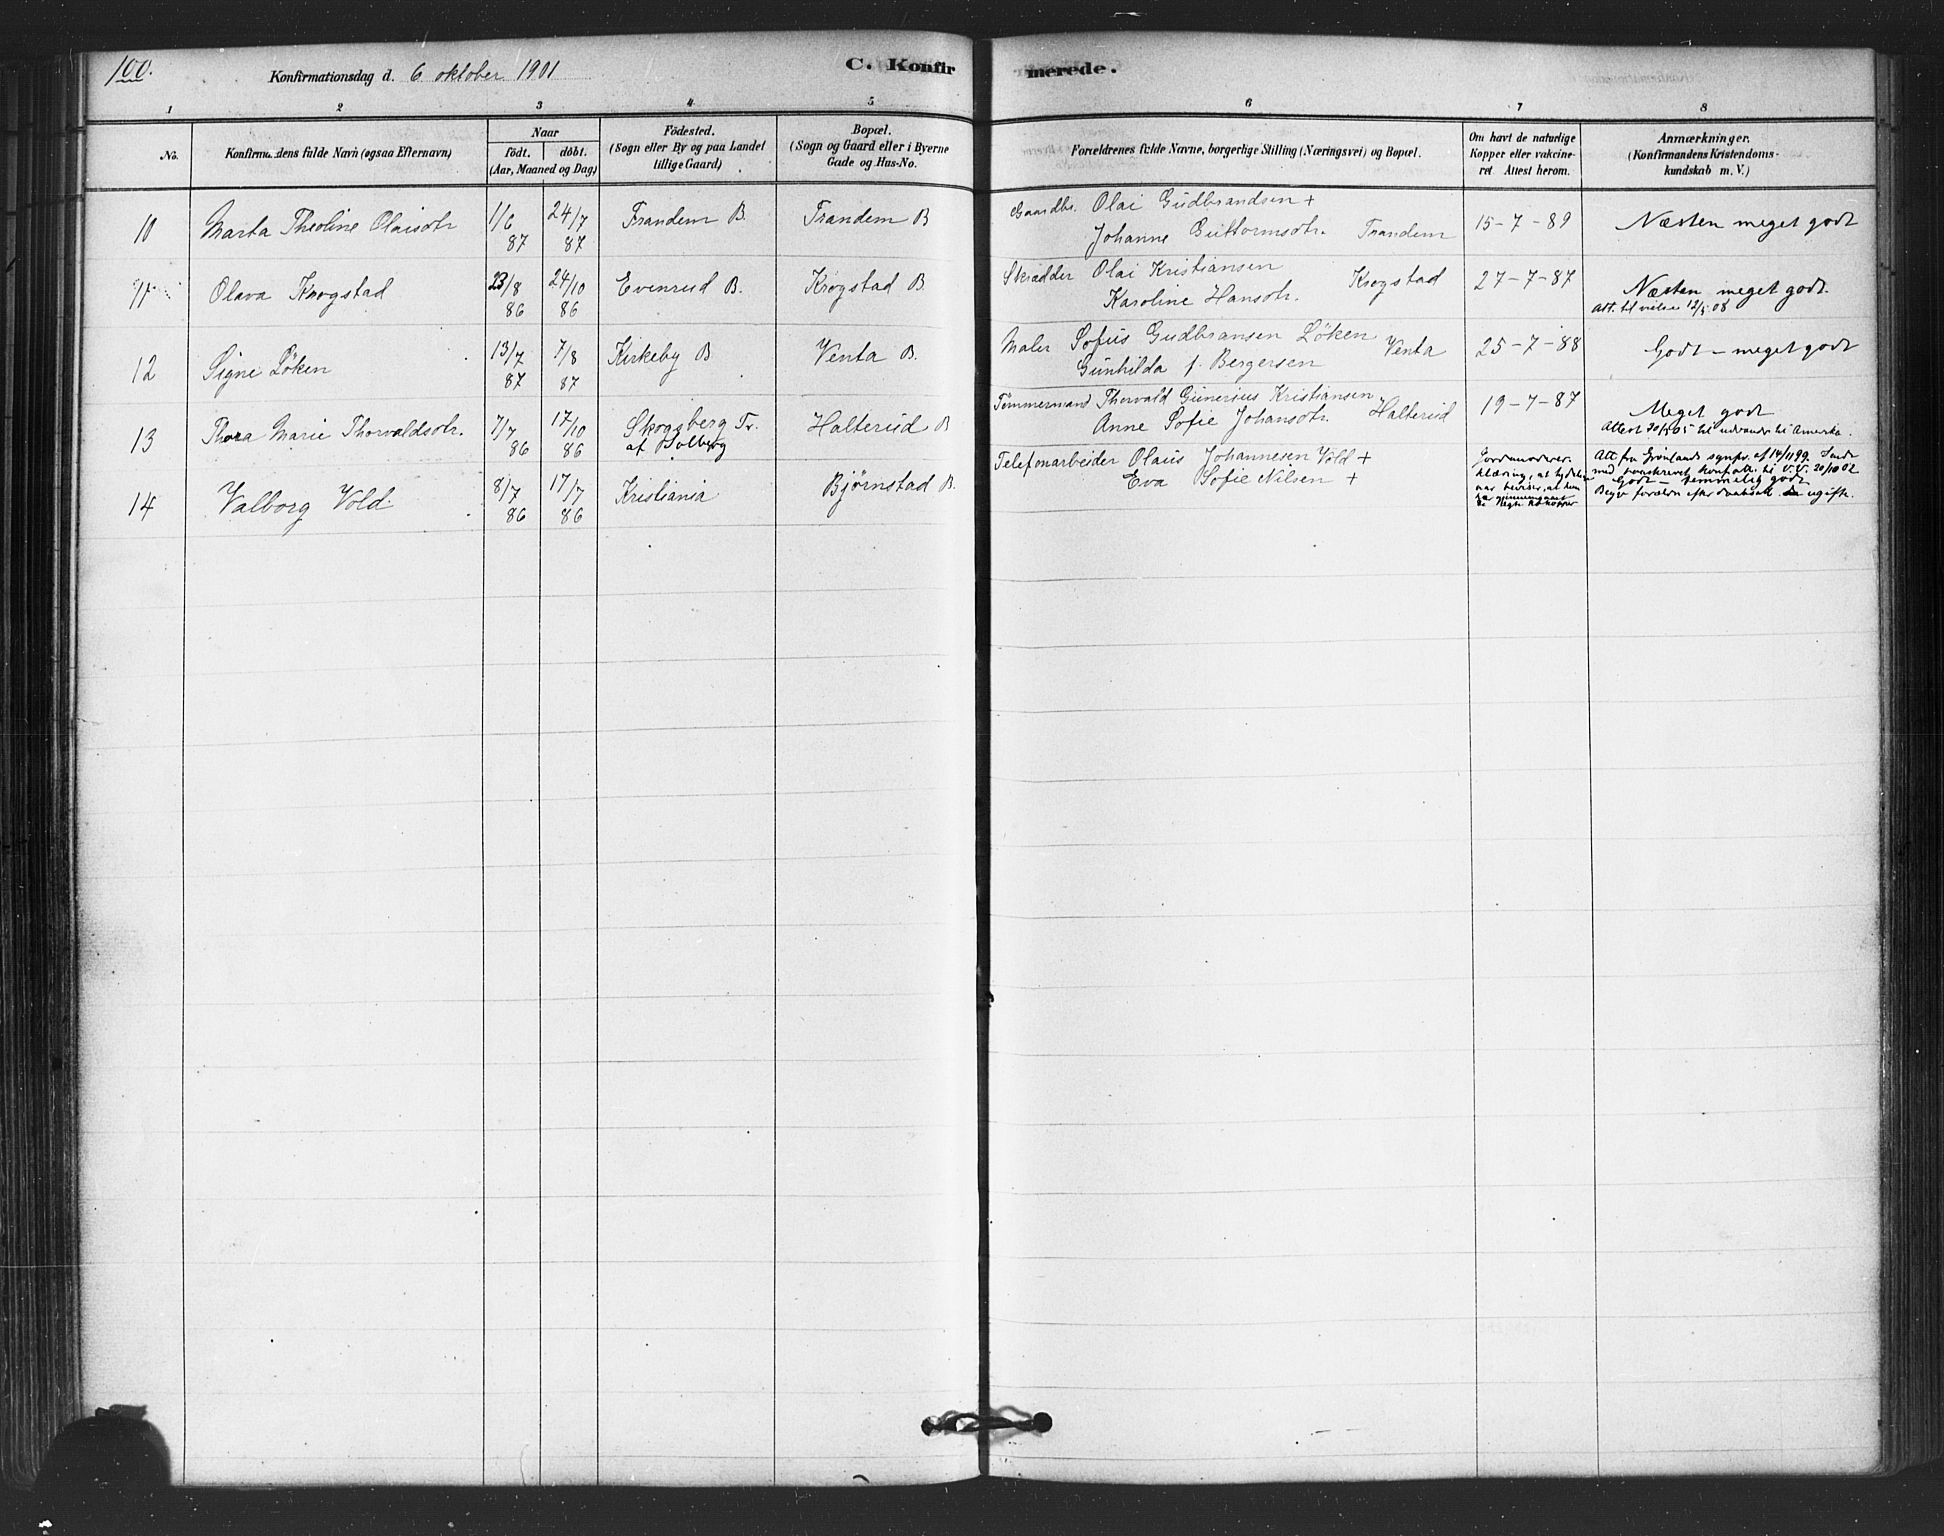 100.
Konfirmationsdag d. 6 oktober 1901
C. Konfirmerede.
1 2 3 4 5 6 7 8
No.
Konfirmandens fulde Navn (ogsaa Efternavn)
Naar
födt. döbt.
(Aar, Maaned og Dag)
Födested.
(Sogn eller By og paa Landet
tillige Gaard)
Bopæl.
(Sogn og Gaard eller i Byerne
Gade og Hus-No.
Forældrenes fulde Navne, borgerlige Stilling (Næringsvei) og Bopæl.
Om havt de naturlige
Kopper eller vakcine-
ret Attest herom.
Anmærkninger.
(Konfirmandens Kristendoms-
kundskab m. V.)
10 Marta Theoline Olaisdtr 1/6 87 24/7 87 Trandem B. Trandem B
Gaardbr. Olai Gudbrandsen +
Johanne Guttormsdtr. Trandem
15-7-89 Næsten meget godt
11 Olava Krogstad 23/8 86 24/10 86 Evenrud B. Krogstad B
Skrædder Olai Kristiansen
Karoline Hansdtr. Krogstad
27-7-87 Næsten meget godt.
Att. til vielse 12/5 08
12 Signe Löken 13/7 87 7/8 87 Kirkeby B Venta B.
Maler Sofus Gudbransen Löken
Gunhilda f. Bergersen Venta
25-7-88 Godt - meget godt
13 Thora Marie Thorvaldsdtr. 7/7 86 17/10 86 Skogsberg Tr.
af Solberg
Halterud B
Tömmermand Thorvald Gunerius Kristiansen
Anne Sofie Johansdtr. Halterud
19-7-87 Meget godt
Attest 20/5 05 til udvandr. til Amerika.
14 Valborg Vold 8/7 86 17/7 86 Kristiania Bjørnstad B.
Telefonarbeider Olaus Johannesen Vold +
Eva Sofie Nilsen +
klæring, at
Att. fra Grönlands sognpr. af 14/11 99.
20/10 02
Godt - temmelig godt
ugifte.